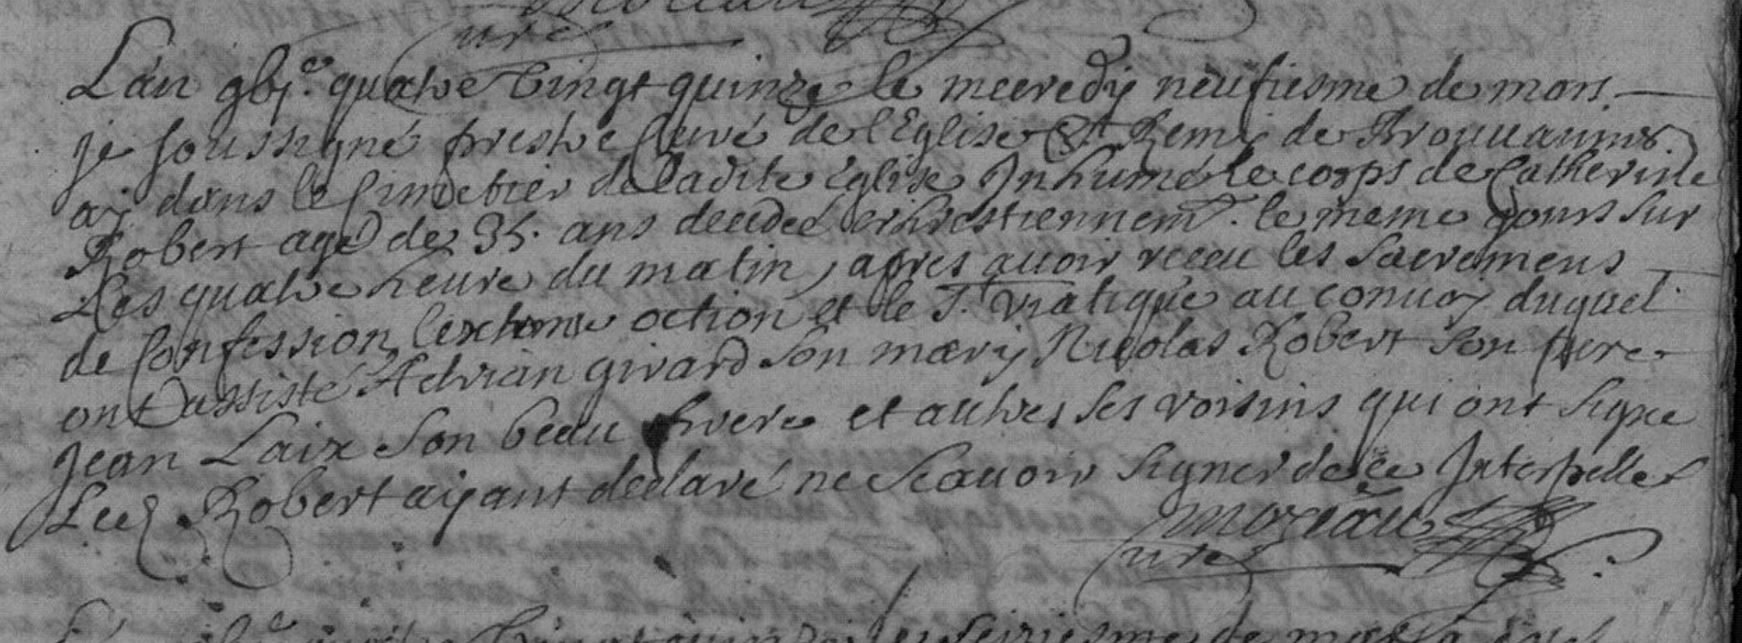 curé
L'an gbjc. quatre vingt quinze le mecredÿ neufiesme de mars
je soussigné prestre curé de l'Eglise St Remÿ de
aÿ dans le Cimetier de ladite église Inhumé le corps de Catherine
Robert agé de 35. ans decedée chrestiennemt. le meme jour sur
Les quatre heure du matin, apres avoir receu les sacremens
de Confession l'extreme onction et le St. viatique au convoÿ duquel
ont assisté Adrian girard son marÿ Nicolas Robert son frere
Jean Laix son beau frere et autres ses voisins qui ont signe
Led Robert aÿant declaré ne scavoir signer de ce Interpelle
moriau
curé